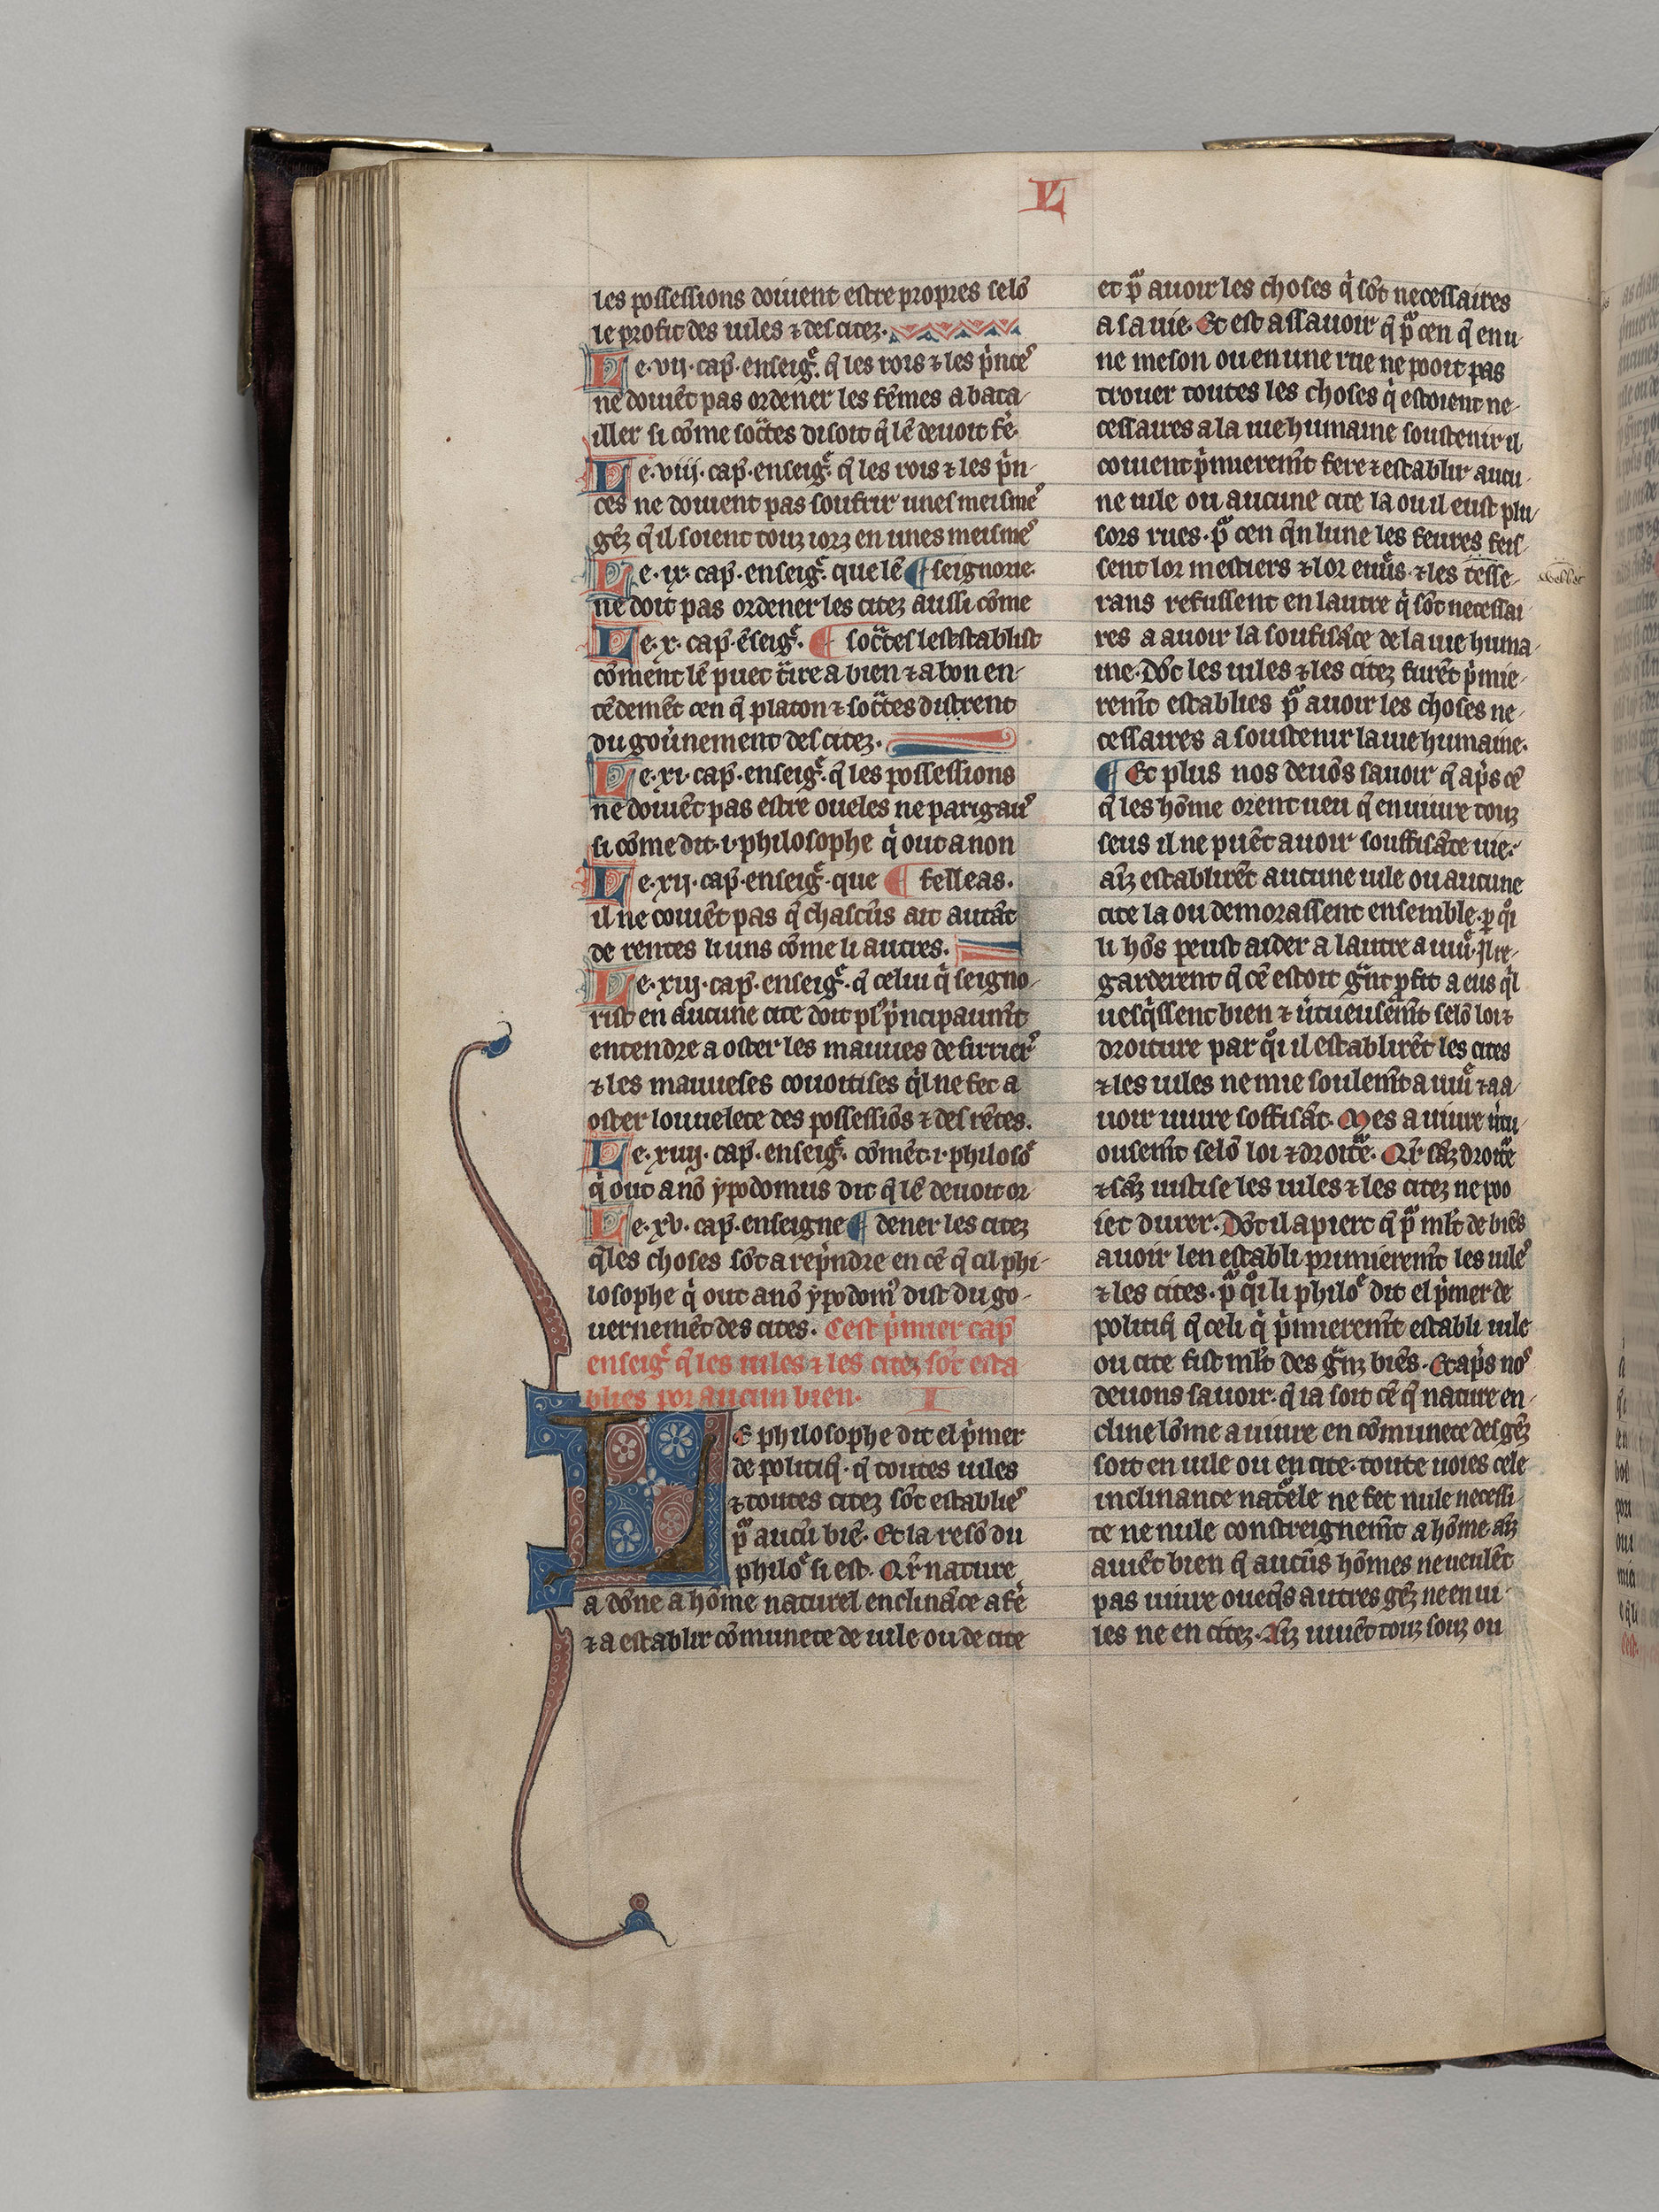 L
les possessions doiuent estre propres selõ
le profit des uiles ⁊ des citez.
Le·vii·cap̃·enseig̃· q̃ les rois ⁊ les p̃nceˢ
ne doiuẽt pas ordener les fẽmes a bata-
iller si cõme soc̃tes disoit q̃ lẽ deuoit fẽ·
Le·viii·cap̃·enseig̃· q̃ les rois ⁊ les p̃n-
ces ne doiuent pas soufrir unes meismeˢ
gẽz q̃ il soient touz iorz en unes meismeˢ
Le·ix·cap̃·enseig̃· que lẽ ¶ seignorie·
ne doit pas ordener les citez aussi cõme
Le·x·cap̃·ẽseig̃· ¶ soc̃tes les establist
cõment lẽ puet t̃ire a bien ⁊ a bon en-
tẽdemẽt cen q̃ platon ⁊ soc̃tes distrent
du gou̾nement des citez.
Le·xi·cap̃·enseig̃· q̃ les possessions
ne doiuẽt pas estre oueles ne parigauˢ
si cõme dit·i·philosophe q̇ out a non
Le·xii·cap̃·enseig̃·que ¶ felleas.
il ne couiẽt pas q̃ chascũs ait autãt
de rentes li uns cõme li autres.
Le·xiii·cap̃·enseig̃· q̃ celui q̇ seigno-
rist en aucune cite doit plˢ p̃ncipaumẽt
entendre a oster les mauues desirrierˢ
⁊ les mauueses couoitises q̇l ne fet a
oster louuelete des possessiõs ⁊ des rẽtes.
Le·xiiij·cap̃·enseig̃· cõmẽt·i·philosõ
q̇ out a nõ ypodomus dit q̃ lẽ deuoit or
Le·xv·cap̃·enseigne ¶ dener les citez
q̃les choses sõt a rep̃ndre en cẽ q̃ cil phi-
losophe q̇ out a nõ ypodomˢ dist du go-
uernemẽt des cites. Cest p̃mier cap̃
enseig̃ q̃ les uiles ⁊ les citez sõt esta
blies por aucun bien. I
Le philosophe dit el p̃mer
de politiq̃· q̃ toutes uiles
⁊ toutes citez sõt establieˢ
pᵃ aucũ biẽ· Et la resõ du
philõ si est· Qr̃ nature
a dõne a hõme naturel enclinãce a fẽ
⁊ a establir cõmunete de uile ou de cite
et pᵃ auoir les choses q̇ sõt necessaires
a sa uie· Et est assauoir q̃ pᵃ cen q̃ en u-
ne meson ou en une rue ne pooit pas
trouer toutes les choses q̇ estoient ne-
cessaires a la uie humaine soustenir il
couient p̃mieremẽt fere ⁊ establir aucu-
ne uile ou aucune cite la ou il eust plu-
sors rues· pᵃ cen q̃n lune les feures feis-
sent lor mestiers ⁊ lor euũs·⁊ les tesse-
rans refussent en lautre q̇ sõt necessai
res a auoir la soufisãce de la uie huma-
ine· Dõt les uiles ⁊ les citez furẽt p̃mie-
remẽt establies pᵃ auoir les choses ne-
cessaires a soustenir la uie humaine·
¶ Et plus nos deuõs sauoir q̃ ap̃s cẽ
q̃ les hõme orent ueu q̃ en uiure touz
seus il ne puẽt auoir souffisãce uie·
aĩz establirẽt aucune uile ou aucune
cite la ou demorassent ensemble· p qⁱ
li hõs peust aider a lautre a uiũ· Il re-
garderent q̃ cẽ estoit g̃nt pfit a eus q̇l
uesq̇ssent bien ⁊ ũtueusemẽt selõ loi ⁊
droiture par qⁱ il establirẽt les cites
⁊ les uiles ne mie soulemẽt a uiũ ⁊ a a-
uoir uiure soffisãt· Mes a uiure ũtu-
ousemẽt selõ loi ⁊ droitẽ· Qr̃ sãz droitẽ
⁊ sãz iustise les uiles ⁊ les citez ne poo
iet durer· Dõt il apiert q̃ pᵃ ml̃t de biẽs
auoir len establi primieremẽt les uileˢ
⁊ les cites· pᵃ qⁱ li philõ dit el p̃mer de
politiq̃ q̃ celi q̇ p̃mieremẽt establi uile
ou cite fist ml̃t des g̃nz biẽs· Et ap̃s noˢ
deuons sauoir· q̃ ia soit cẽ q̃ nature en-
cline lõme a uiure en cõmunete des gẽz
soit en uile ou en cite· toute uoies cele
inclinance nat̃ele ne fet nule necessi-
te ne nule constreignemẽt a hõme aĩz
auiẽt bien q̃ aucũs hõmes ne ueulẽt
pas uiure oueq̃s autres gẽz ne en ui-
les ne en citez· Aĩz uiuẽt touz souz ou